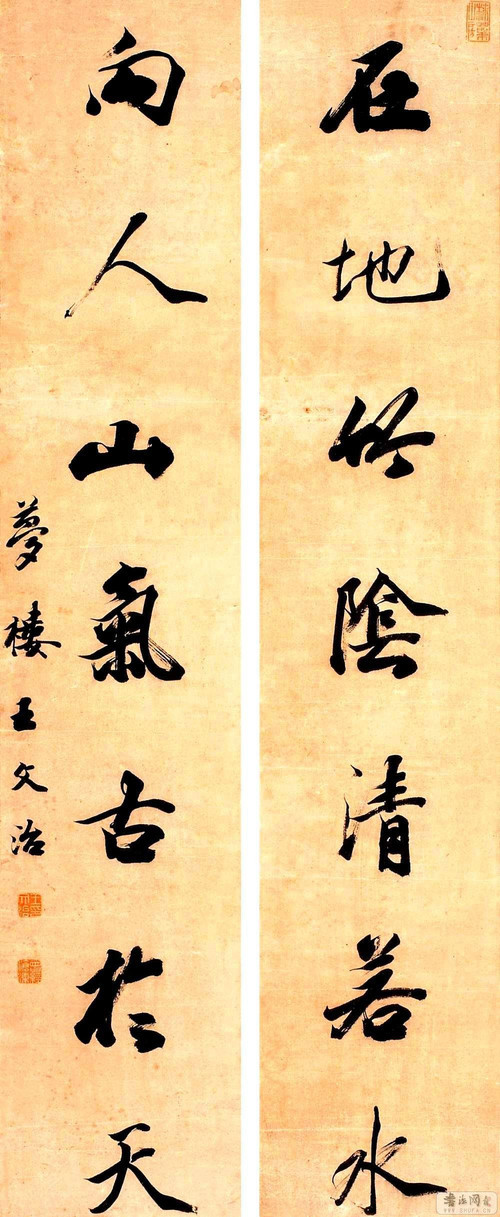 在地竹陰清若水
向人山氣古於天
夢樓王文治
書法网